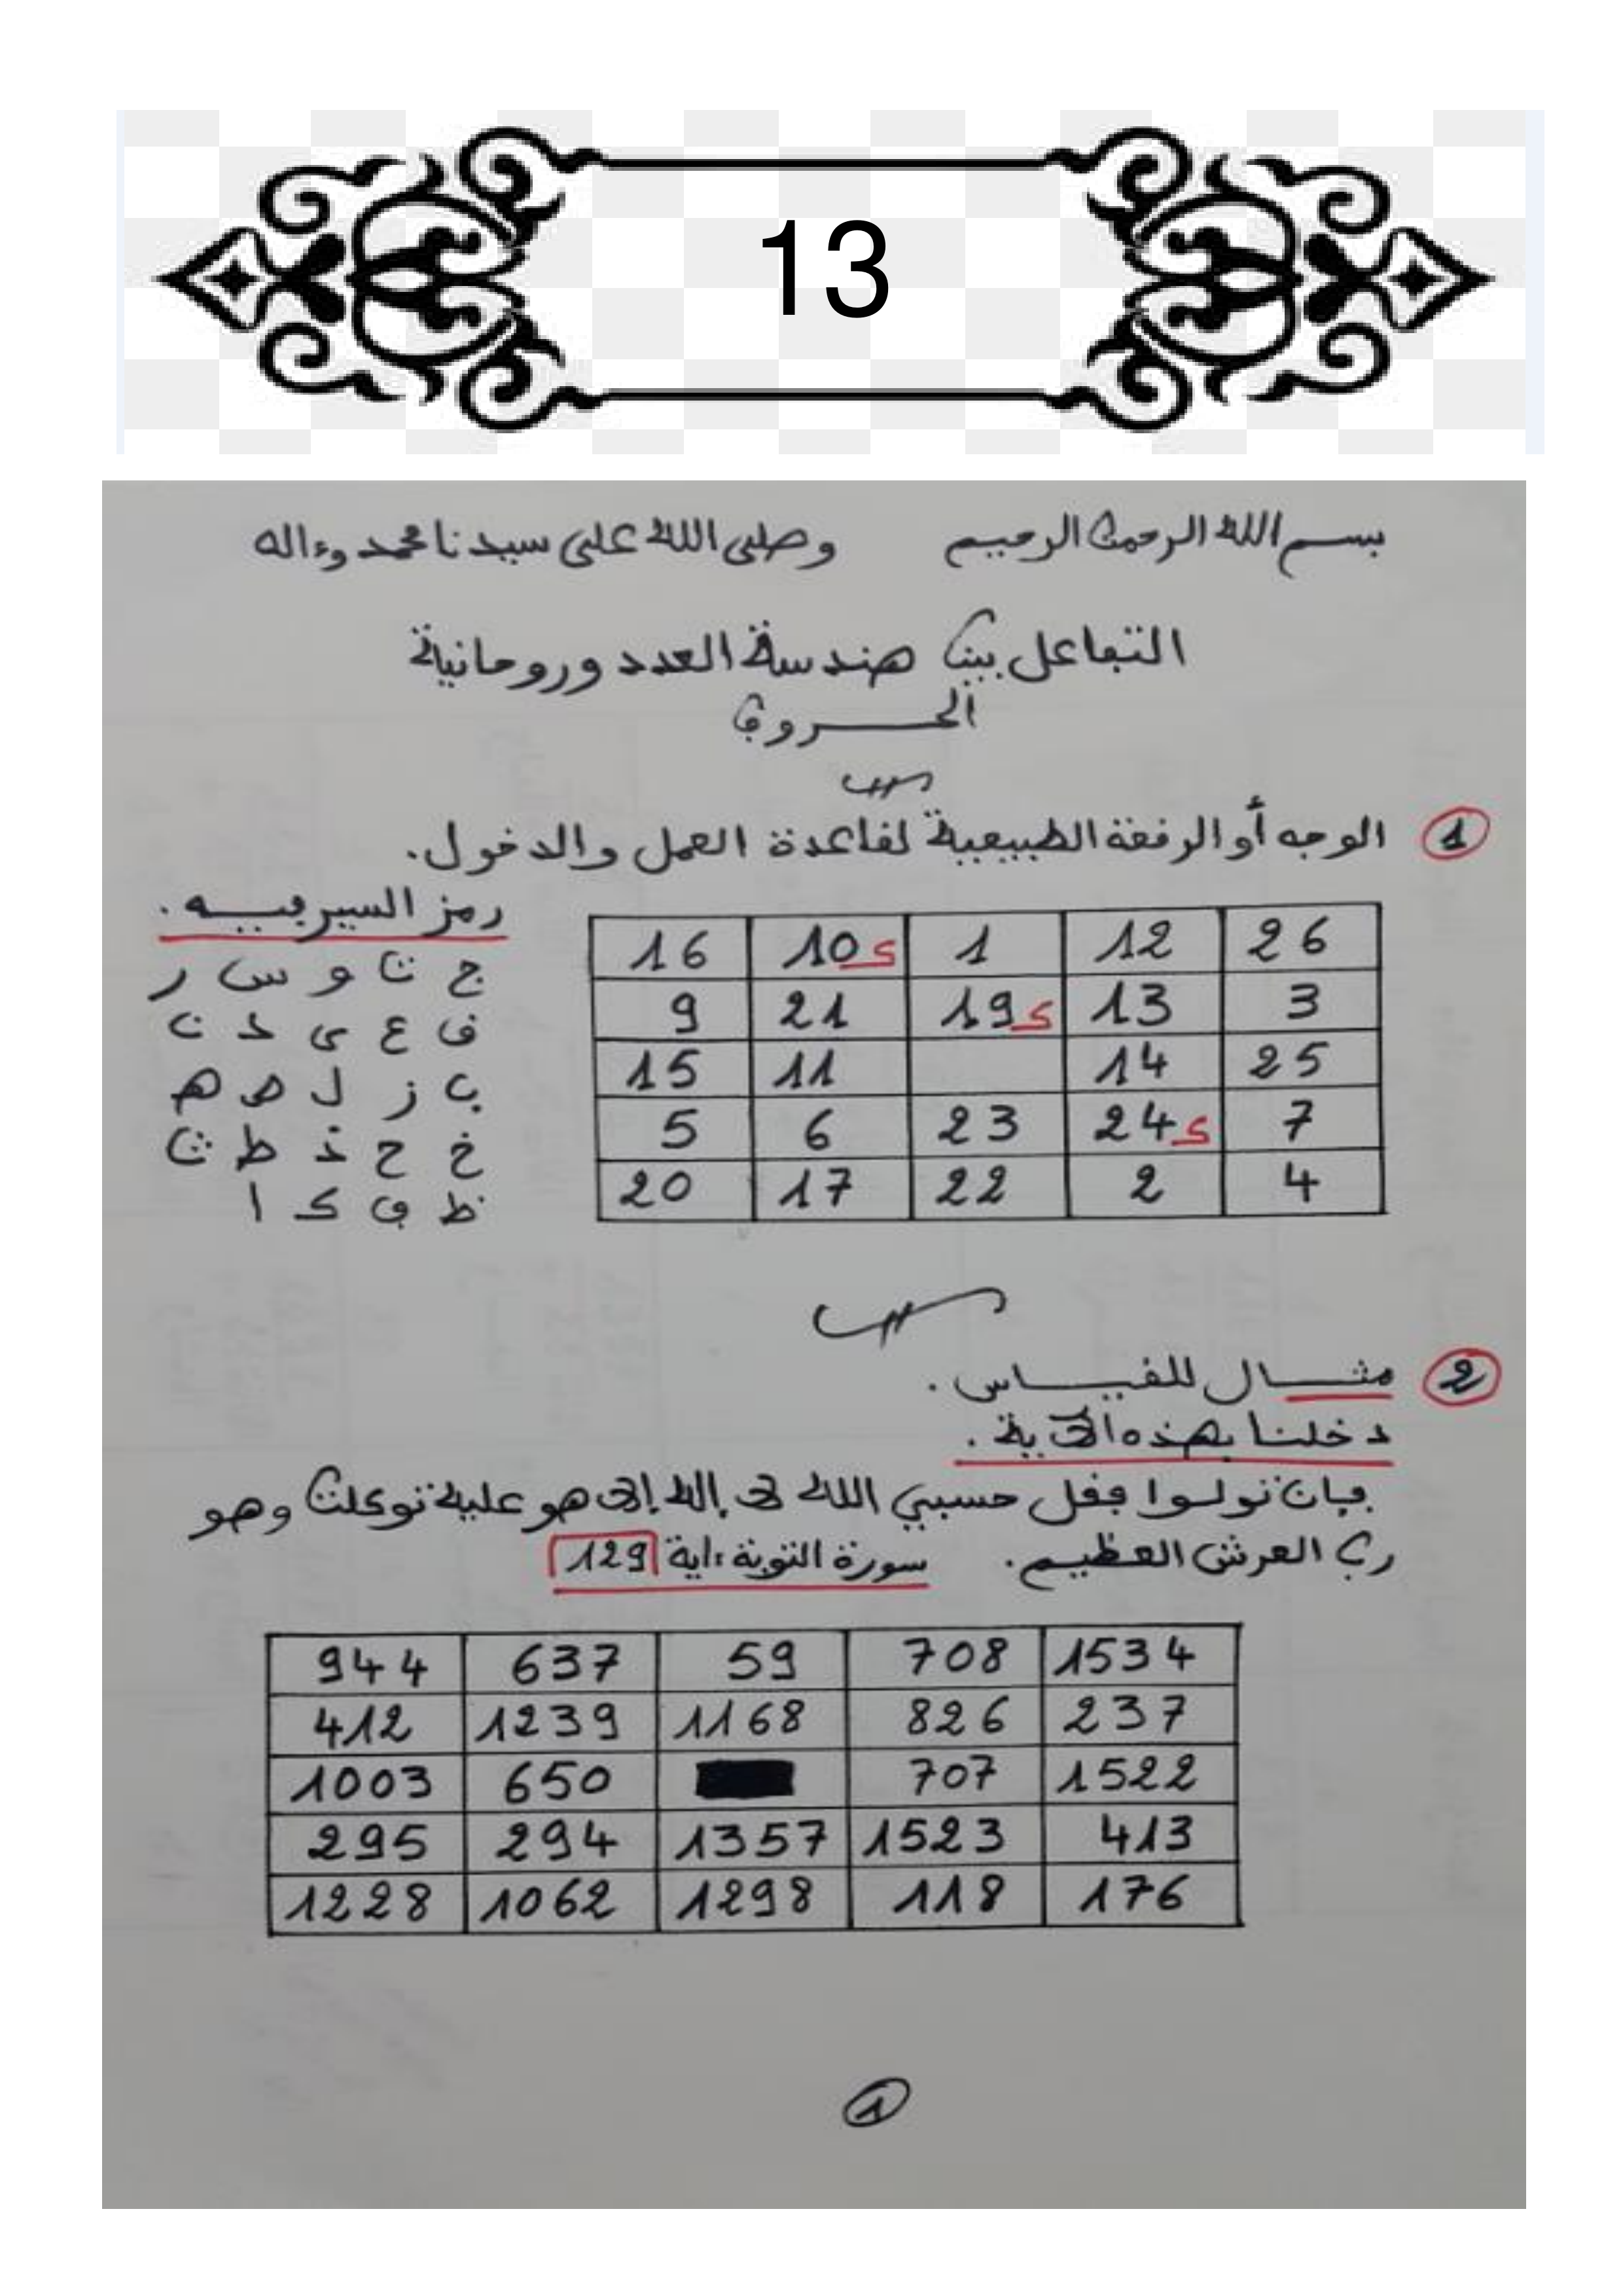 13
بسم الله الرحمن الرحيم وصلى الله على سيدنا محمد وءاله
التفاعل بين هندسة العدد وروحانية
الحروف
① الوجه أو الرقعة الطبيعية لقاعدة العمل والدخول.
رمز السير فيه.
16 10 د 1 12 26
ج ت و س ر
9 21 19 د 13 3
ق ع ى د ن
15 11 14 25
ب ز ل ص ه
5 6 23 24 د 7
خ ح ذ ط ث
20 17 22 2 4
ظ ف ك ا
② مثال للقياس.
دخلنا بهذه الآية.
فإن تولوا فقل حسبي الله لا إله إلا هو عليه توكلت وهو
رب العرش العظيم. سورة التوبة ءاية 129
944 637 59 708 1534
412 1239 1168 826 237
1003 650 707 1522
295 294 1357 1523 413
1228 1062 1298 118 176
①